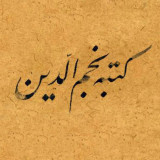 كتبه نجم الدّين